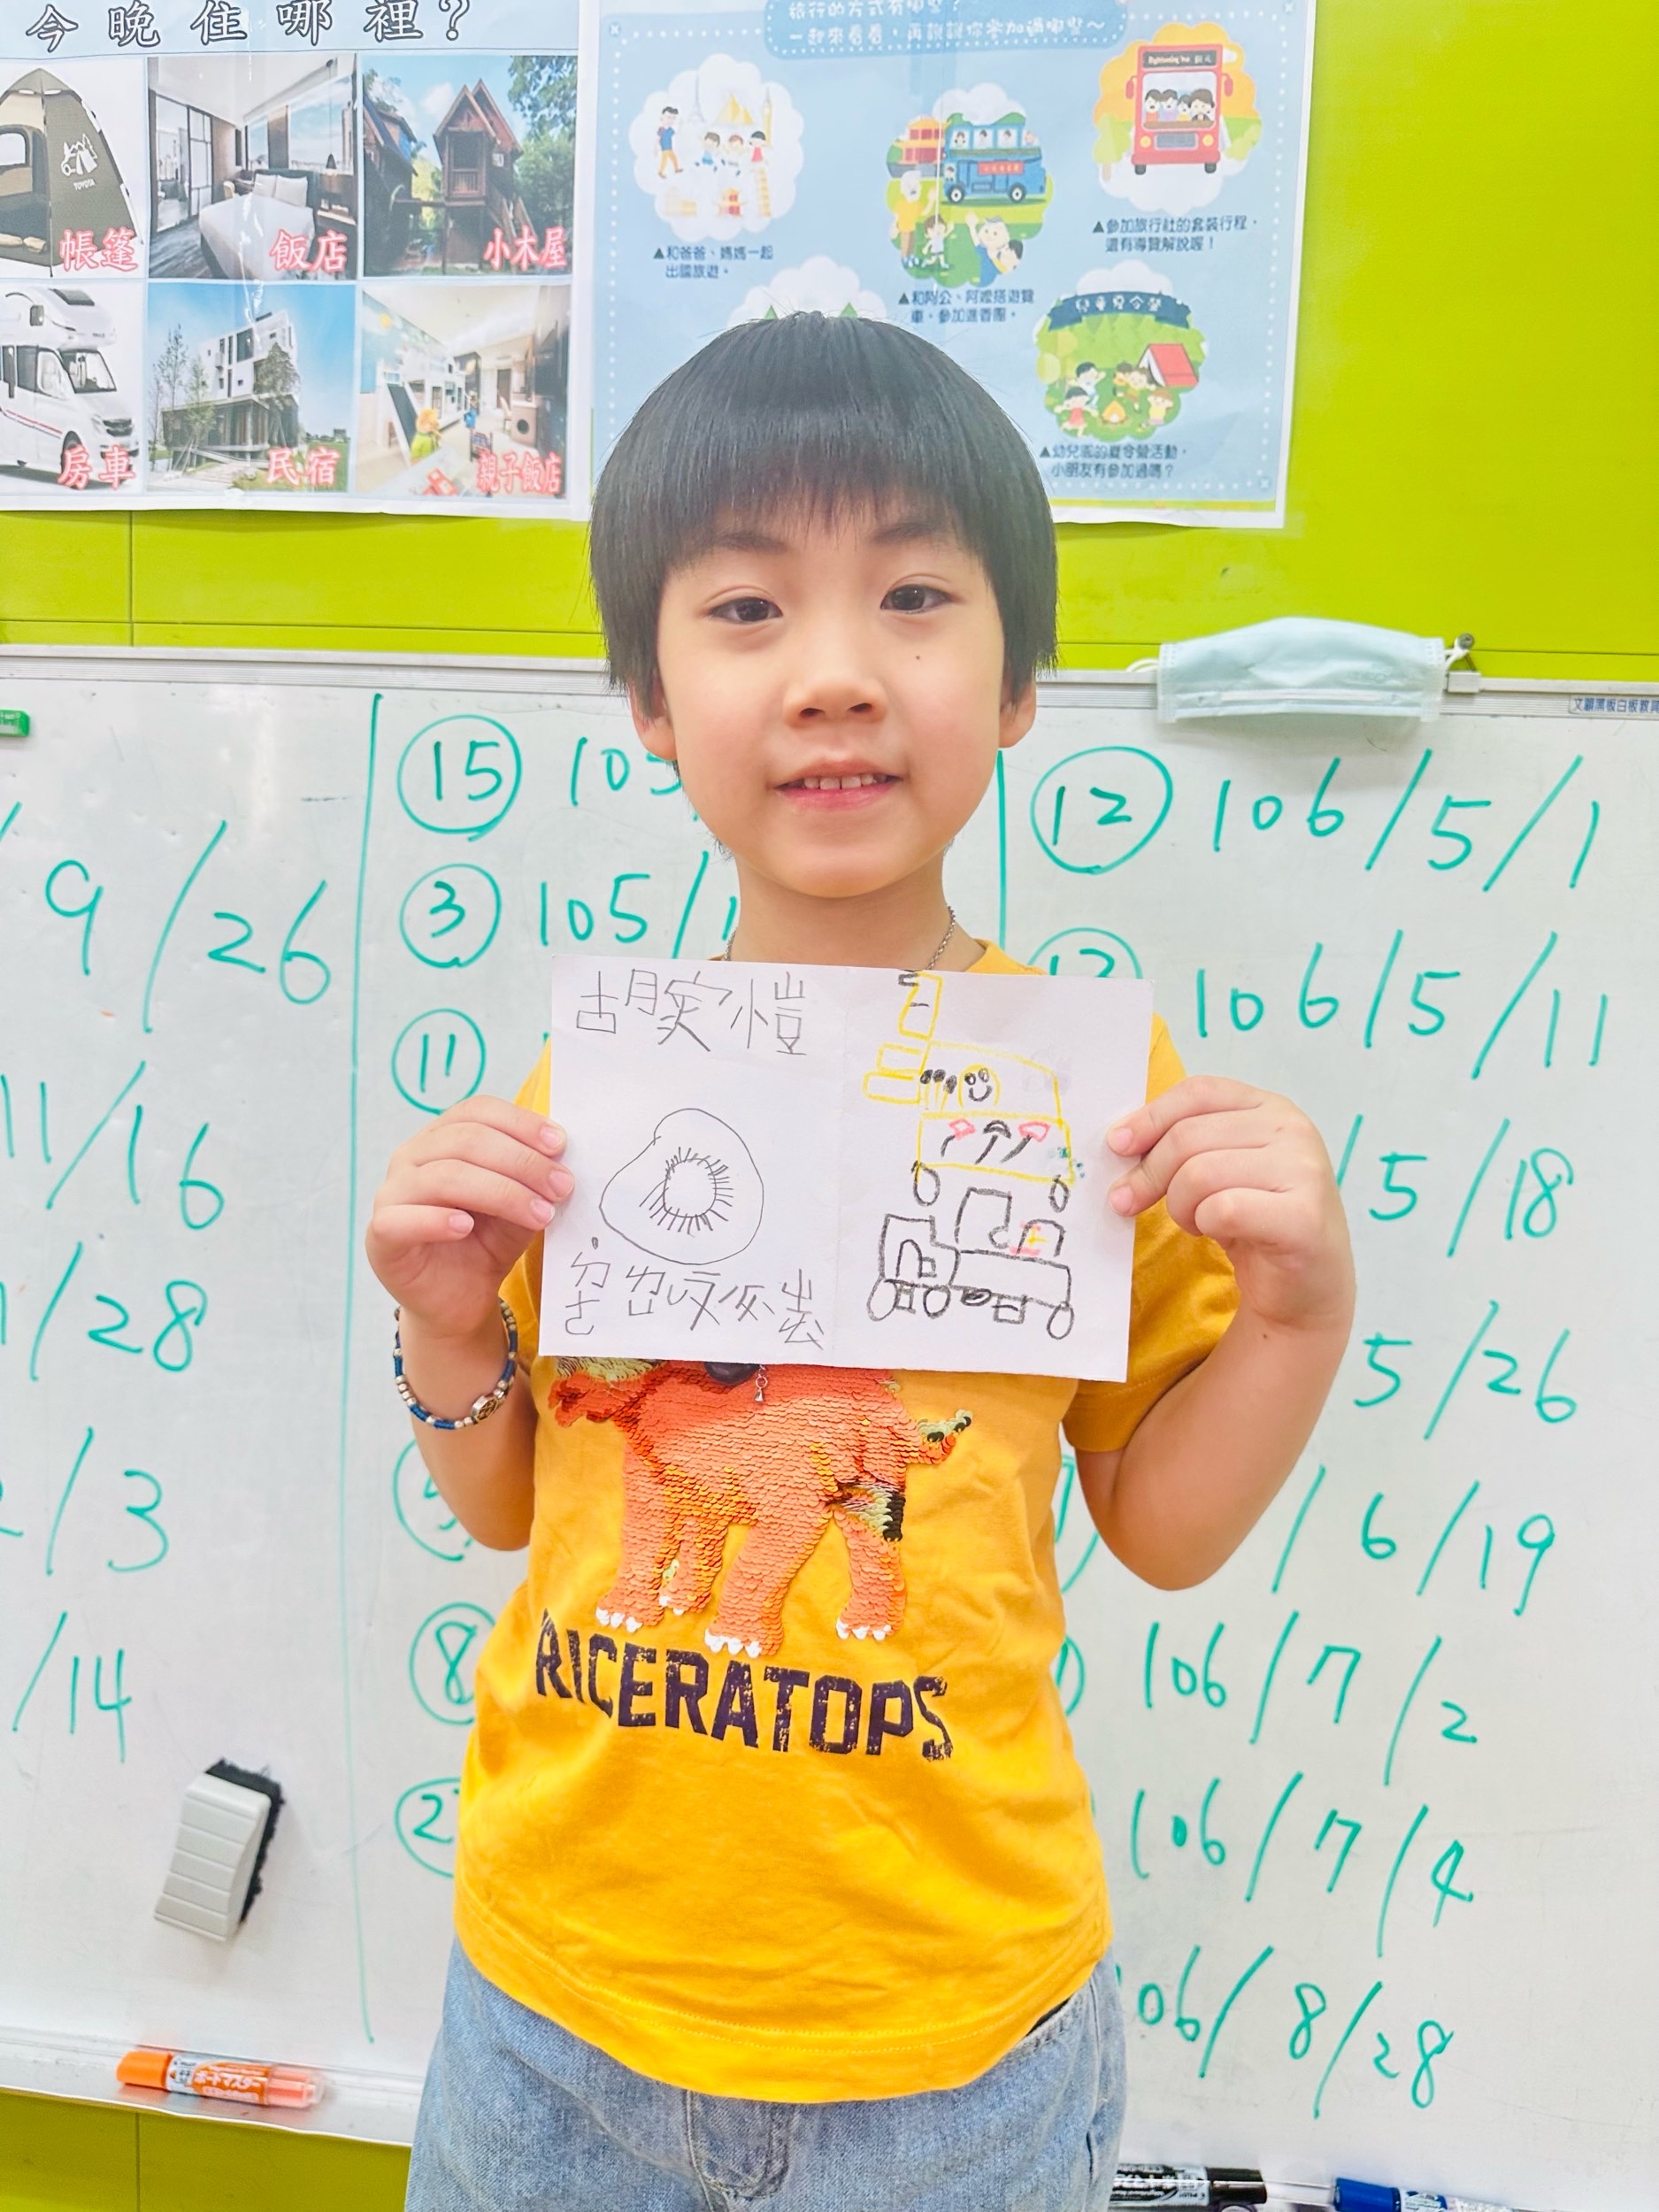 今晚住哪裡？
帳篷
飯店
小木屋
房車
民宿
親子飯店
TOYOTA
一起來看看，再說說你參加過哪些～
▲和爸爸、媽媽一起
出國旅遊。
▲和阿公、阿嬤搭遊覽
車，參加進香團。
▲參加旅行社的套裝行程，
還有導覽解說喔！
兒童夏令營
▲幼兒園的夏令營活動，
小朋友有參加過嗎？
9/26
11/16
/28
/3
/14
⑮ 105
③ 105/1
⑪
⑧
⑫ 106/5/1
106/5/11
/5/18
5/26
/6/19
106/7/2
106/7/4
106/8/28
胡家愷
RICERATOPS
ボードマスター